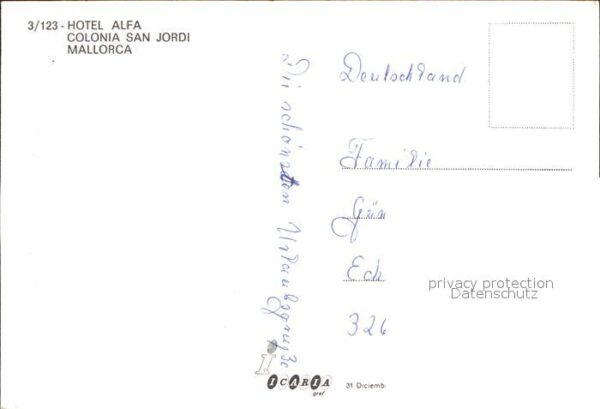 3/123 - HOTEL ALFA
COLONIA SAN JORDI
MALLORCA
Die schönsten Urlaubsgrüße
Deutschland
Familie
Grün
Ech
326
privacy protection
Datenschutz
ICARIA
graf
31 Diciemb